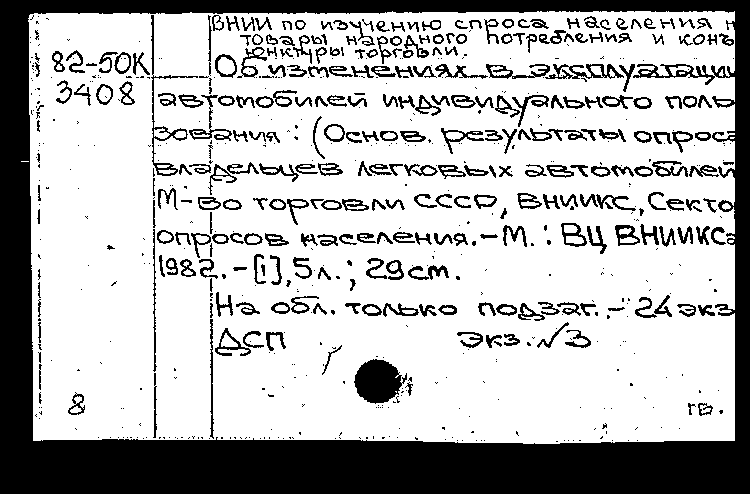 ВНИИ по изучению спроса населения н
товары народного потребления и конъ
юнктуры торговли.
82-5ОК
3408
Об изменениях в эксплуатации
автомобилей индивидуального поль
зования : (Основ. результаты опроса
владельцев легковых автомобилей
М-во торговли СССР, ВНИИКС, Секто
опросов населения. - М. : ВЦ ВНИИКСа
1982. - [1], 5 л. ; 29 см.
На обл. только подзаг. - 24 экз
ДСП экз. №3
8
гв.